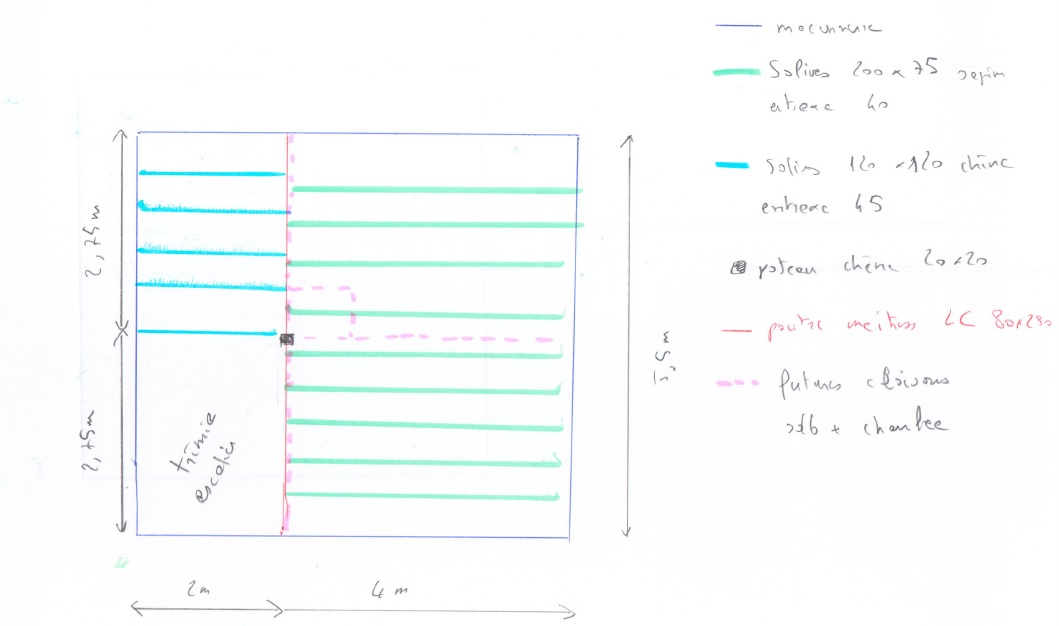 maconnerie
Solives 200 x 75 sapin
entraxe 40
Solives 120 x 120 chêne
entraxe 45
poteau chêne 20x20
poutre LC 80x280
futures cloisons
sdb + chambre
2,75m
2,75m
5,5 m
trémie
escalier
2m
4 m